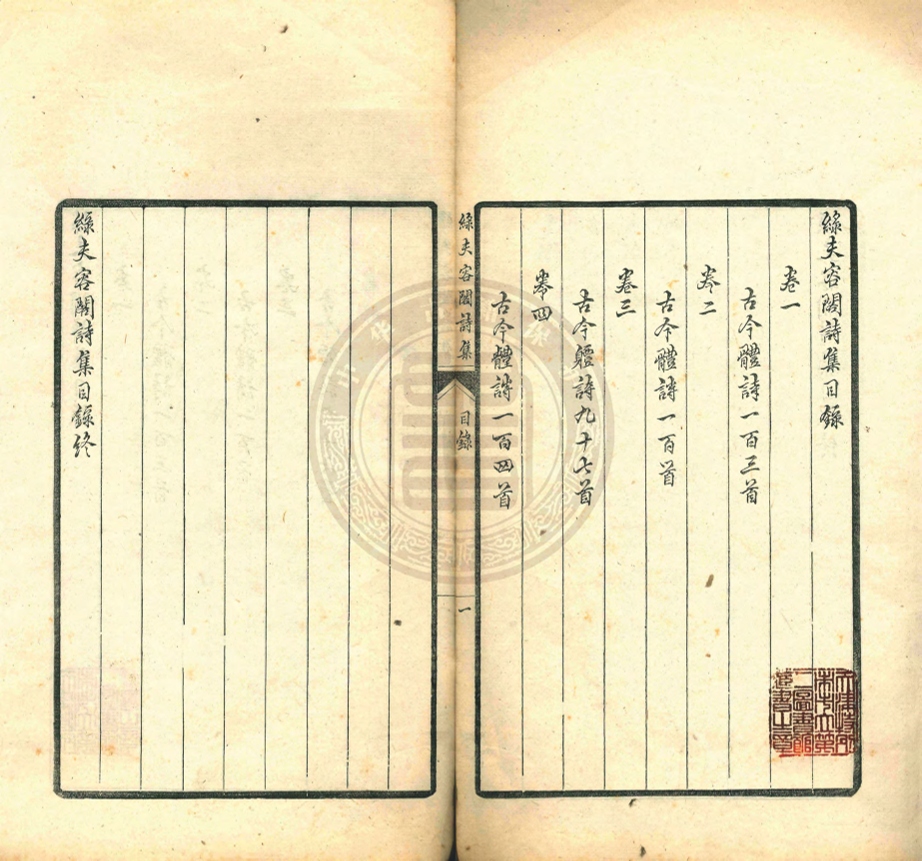 綠夫容閣詩集目錄
卷一
古今體詩一百三首
卷二
古今體詩一百首
卷三
古今體詩九十七首
卷四
古今體詩一百四首
綠夫容閣詩集
目錄
一
綠夫容閣詩集目錄終